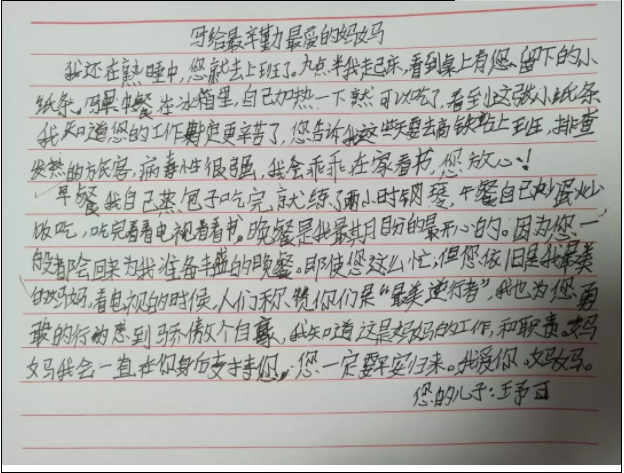 写给最辛勤最爱的妈妈
我还在熟睡中,您就去上班了。九点半我起床,看到桌上有您留下的小
纸条。写早中餐在冰箱里,自己加热一下就可以吃了,看到这张小纸条
我知道您的工作更辛苦了,您告诉我这些天要去高铁站上班,排查
发热的旅客,病毒性很强,我会乖乖在家看书,您放心!
早餐我自己蒸包子吃完就练了两小时钢琴,午餐自己炒蛋炒
饭吃,吃完看看电视看看书。晚餐是我最期盼的最开心的。因为您一
般都会回来为我准备丰盛的晚餐。即使您这么忙,但您依旧是我最美
的妈妈,看电视的时候,人们称赞你们是“最美逆行者”,我也为您勇
敢的行为感到骄傲自豪,我知道这是妈妈的工作,和职责。妈
妈我会一直在你身后支持您,您一定要平安归来。我爱你,妈妈。
您的儿子:王予